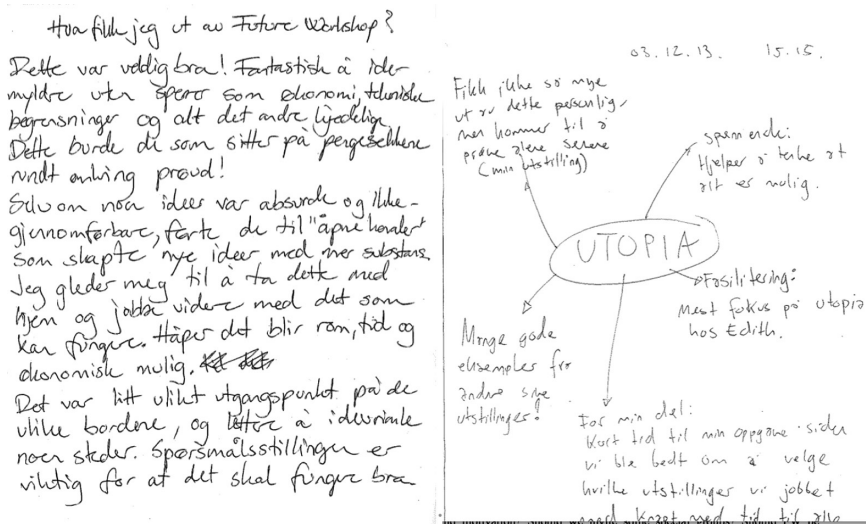 Hva fikk jeg ut av Future Workshop?
Dette var veldig bra! Fantastisk å ide-
myldre uten sperrer som økonomi, tekniske
begrensninger og alt det andre kjedelige.
Dette burde de som sitter på pengesekkene
rundt omkring prøvd!
Selv om noen ideer var absurde og ikke-
gjennomførbare, førte de til "åpne kanaler"
som skapte nye ideer med mer substans.
Jeg gleder meg til å ta dette med
hjem og jobbe videre med det som
kan fungere. Håper det blir rom, tid og
økonomisk mulig.
Det var litt ulikt utgangspunkt på de
ulike bordene, og lettere å
noen steder. Spørsmålsstillingen er
viktig for at det skal fungere bra
03.12.13. 15.15.
Fikk ikke så mye
ut av dette personlig,
men kommer til å
prøve alene senere
(min utstilling)
spennende:
Hjelper å tenke at
alt er mulig.
UTOPIA
Fasilitering:
Mest fokus på utopia
hos Edith.
Mange gode
eksempler fra
andre sine
utstillinger!
For min del:
Kort tid til min oppgave siden
vi ble bedt om å velge
hvilke utstillinger vi jobbet
med. Kort med tid til alle